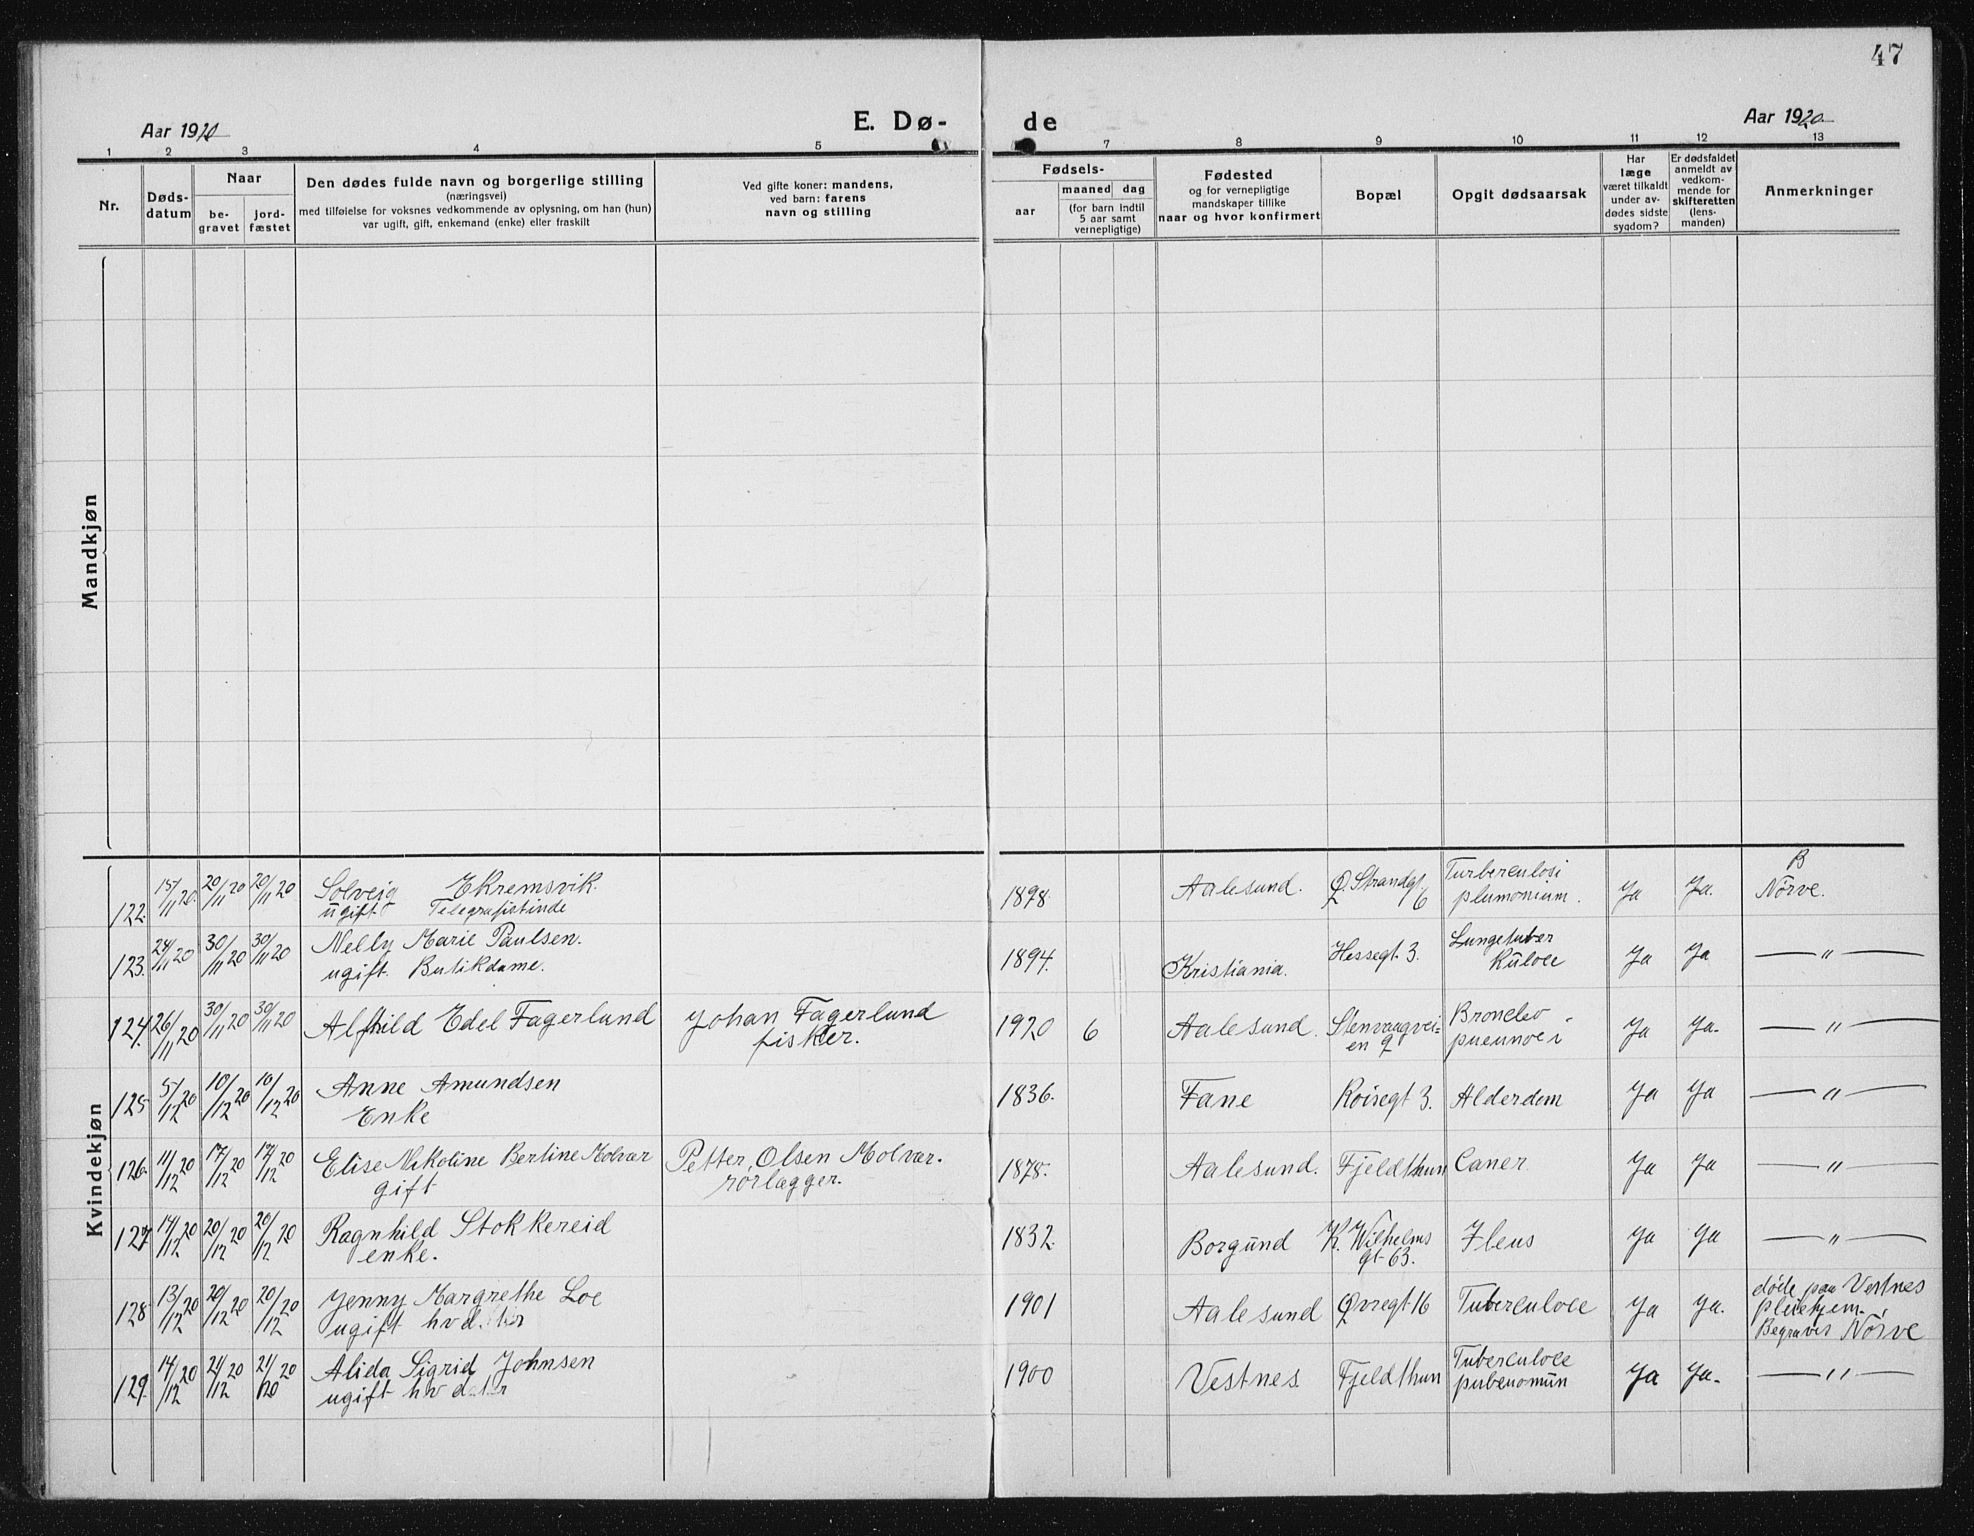 47
Aar 1920
E. Dø- de
Aar 1920
1 2 3 4 5 7 8 9 10 11 12 13
Nr.
Døds-
datum
Naar
be-
gravet
jord-
fæstet
Den dødes fulde navn og borgerlige stilling
(næringsvei)
med tilføielse for voksnes vedkommende av oplysning, om han (hun)
var ugift, gift, enkemand (enke) eller fraskilt
Ved gifte koner: mandens,
ved barn: farens
navn og stilling
Fødsels-
aar
maaned dag
(for barn indtil
5 aar samt
vernepligtige)
Fødested
og for vernepligtige
mandskaper tillike
naar og hvor konfirmert
Bopæl
Opgit dødsaarsak
Har
læge
været tilkaldt
under av-
dødes sidste
sygdom?
Er dødsfaldet
anmeldt av
vedkom-
mende for
skifteretten
(lens-
manden)
Anmerkninger
Mandkjøn
Kvindekjøn
122. 15/11 20. 20/11 20 20/11 20 Solveig Ekremsvik. 1898. Aalesund. Ø Strandgt. 6 Turberculosi Ja Ja. B
ugift. Telegrafistinde plumonium. Nørve.
123. 24/11 20 30/11 20 30/11 20 Nelly Marie Paulsen. 1894. Kristiania. Hessegt. 3. Lungetuber Ja Ja — " —
ugift. Butikdame. kuloce
124. 26/11 20 30/11 20 30/11 20 Alfhild Edel Fagerlund Johan Fagerlund 1920 6 Aalesund. Stenvaagvei= Ja Ja. — " —
fisker. en 9
125. 5/12 20 10/12 20 10/12 20 Anne Amundsen 1836. Fane Roisegt 3. Alderdom Ja Ja — " —
Enke
126. 11/12 20 17/12 20 17/12 20 Elise Nikoline Bertine Molvær Petter Olsen Molvær. 1878. Aalesund. Fjeldthun Caner. Ja Ja — " —
gift rørlægger.
127. 14/12 20 20/12 20 20/12 20 Ragnhild Stokkereid 1832. Borgund K. Wilhelms Ileus Ja Ja — " —
enke. gt. 63.
128. 13/12 20 20/12 20 20/12 20 Jenny Margrethe Loe 1901 Aalesund Øvregt. 16 Tuberculoce Ja Ja. døde paa Vestnes
ugift hvd. pleiehjem.
Begraves Nørve
129. 14/12 20 21/12 20 21/20 20 Alida Sigrid Johnsen 1900 Vestnes Fjeldthun Tuberculoce Ja Ja. — " —
ugift